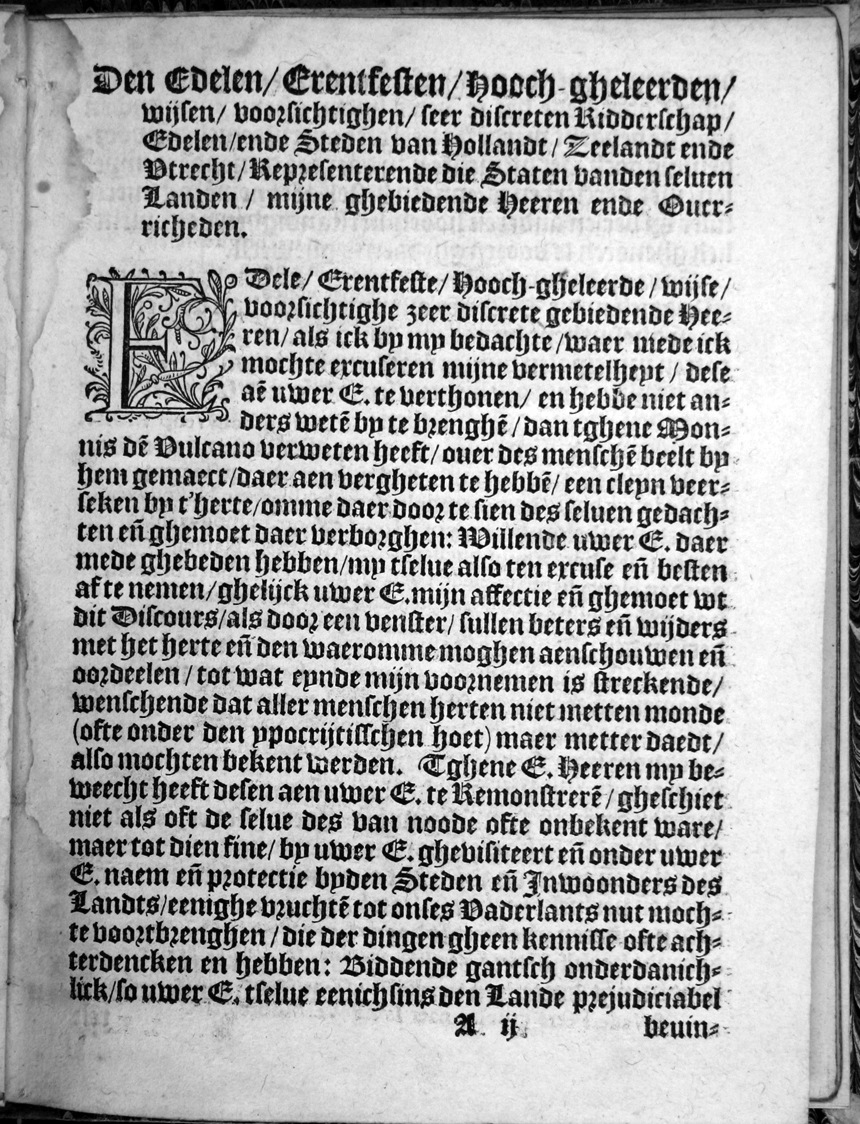 Den Edelen/ Erentfesten/ Hooch-gheleerden/
wijsen/ voorsichtighen/ seer discreten Ridderschap/
Edelen/ende Steden van Hollandt/ Zeelandt ende
Vtrecht/ Representerende die Staten vanden seluen
Landen / mijne ghebiedende Heeren ende Ouer-
richeden.
EDele/ Erentfeste/ Hooch-gheleerde /wijse/
voorsichtighe zeer discrete gebiedende Hee-
ren/ als ick by my bedachte /waer mede ick
mochte excuseren mijne vermetelheyt / dese
aē uwer E. te verthonen/ en hebbe niet an-
ders wetē by te brenghē/ dan tghene Mon-
nis dē Vulcano verweten heeft/ ouer des menschē beelt by
hem gemaect/daer aen vergheten te hebbē/ een cleyn veer-
seken by t'herte/omme daer door te sien des seluen gedach-
ten eñ ghemoet daer verborghen: Willende uwer E. daer
mede ghebeden hebben/my tselue also ten excuse eñ besten
af te nemen/ghelijck uwer E. mijn affectie eñ ghemoet wt
dit Discours/als door een venster/ sullen beters eñ wijders
met het herte eñ den waeromme moghen aenschouwen eñ
oordeelen / tot wat eynde mijn voornemen is streckende/
wenschende dat aller menschen herten niet metten monde
(ofte onder den ypocrijtisschen hoet) maer metter daedt/
also mochten bekent werden. Tghene E. Heeren my be-
weecht heeft desen aen uwer E. te Remonstrerē / gheschiet
niet als oft de selue des van noode ofte onbekent ware/
maer tot dien fine/ by uwer E. ghevisiteert eñ onder uwer
E. naem eñ protectie byden Steden eñ Inwoonders des
Landts/eenighe vruchtē tot onses Vaderlants nut moch-
te voortbrenghen / die der dingen gheen kennisse ofte ach-
terdencken en hebben: Biddende gantsch onderdanich-
lick/so uwer E. tselue eenichsins den Lande prejudiciabel
A ij beuin-